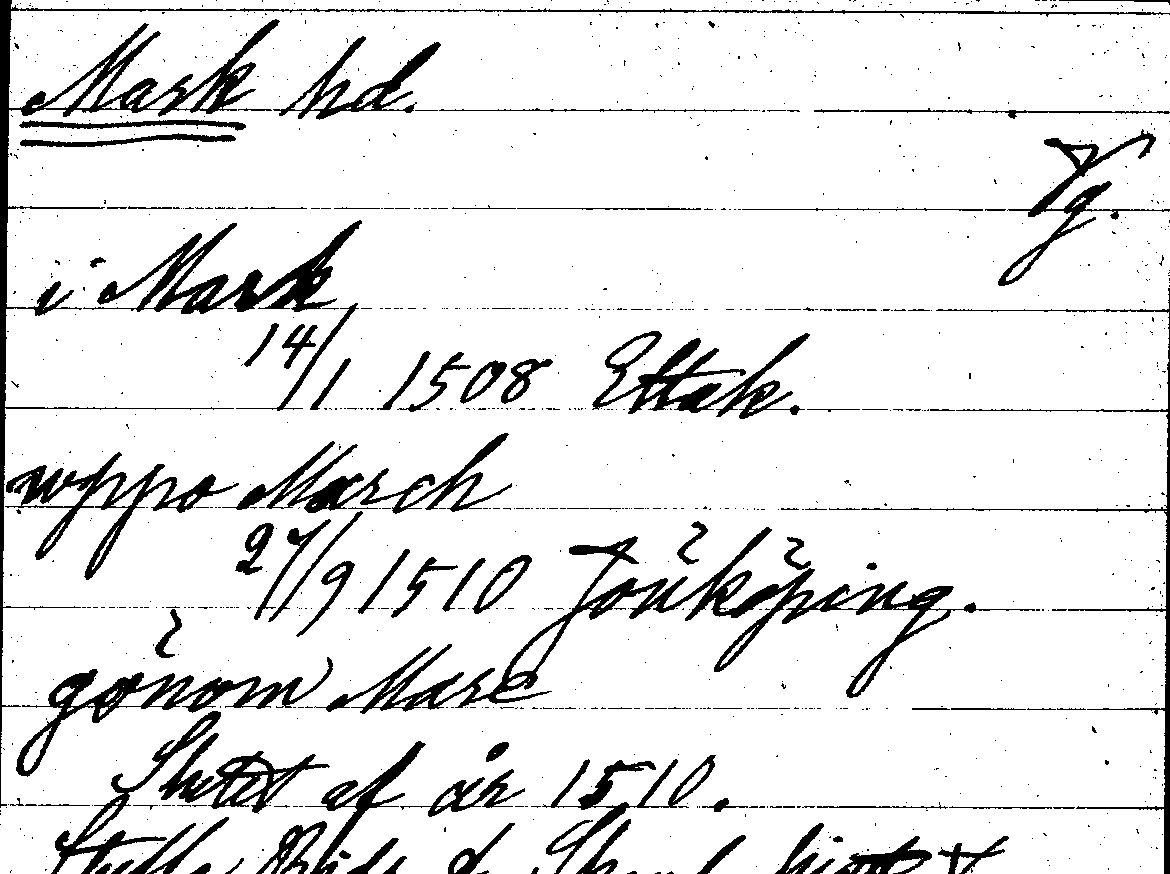 Mark hd.
Vg.
i Mark
14/1 1508 Ettak.
wppo March
27/9 1510 Jönköping.
gönom Marc
Slutet af år 1510.
Styffe, Bidr.